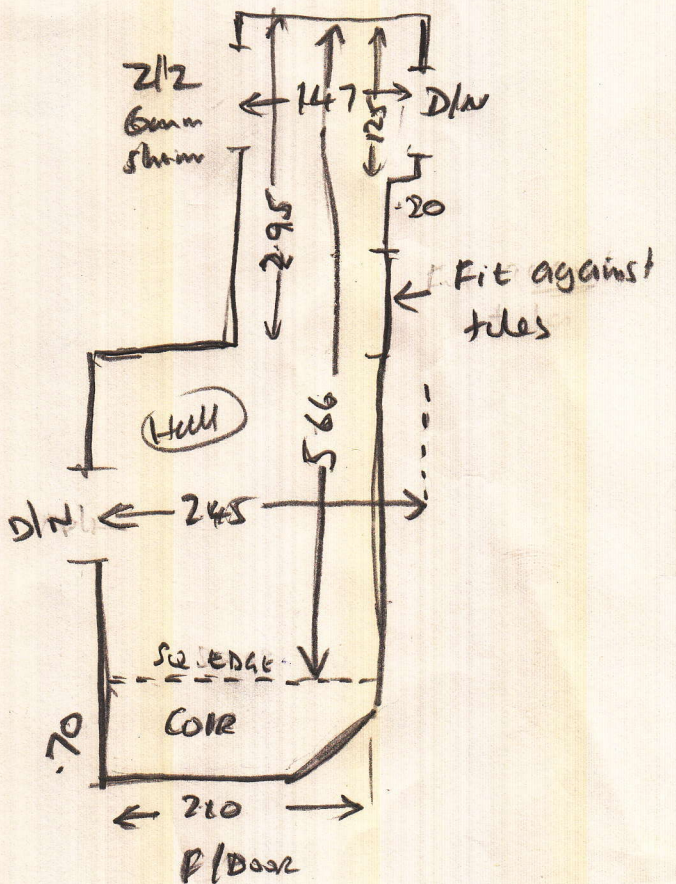 Z/2
6mm
shim
147
D/N
125
.20
295
Fit against
tiles
Hall
566
D/N
245
SQ. EDGE
COIR
.70
210
F/DOOR